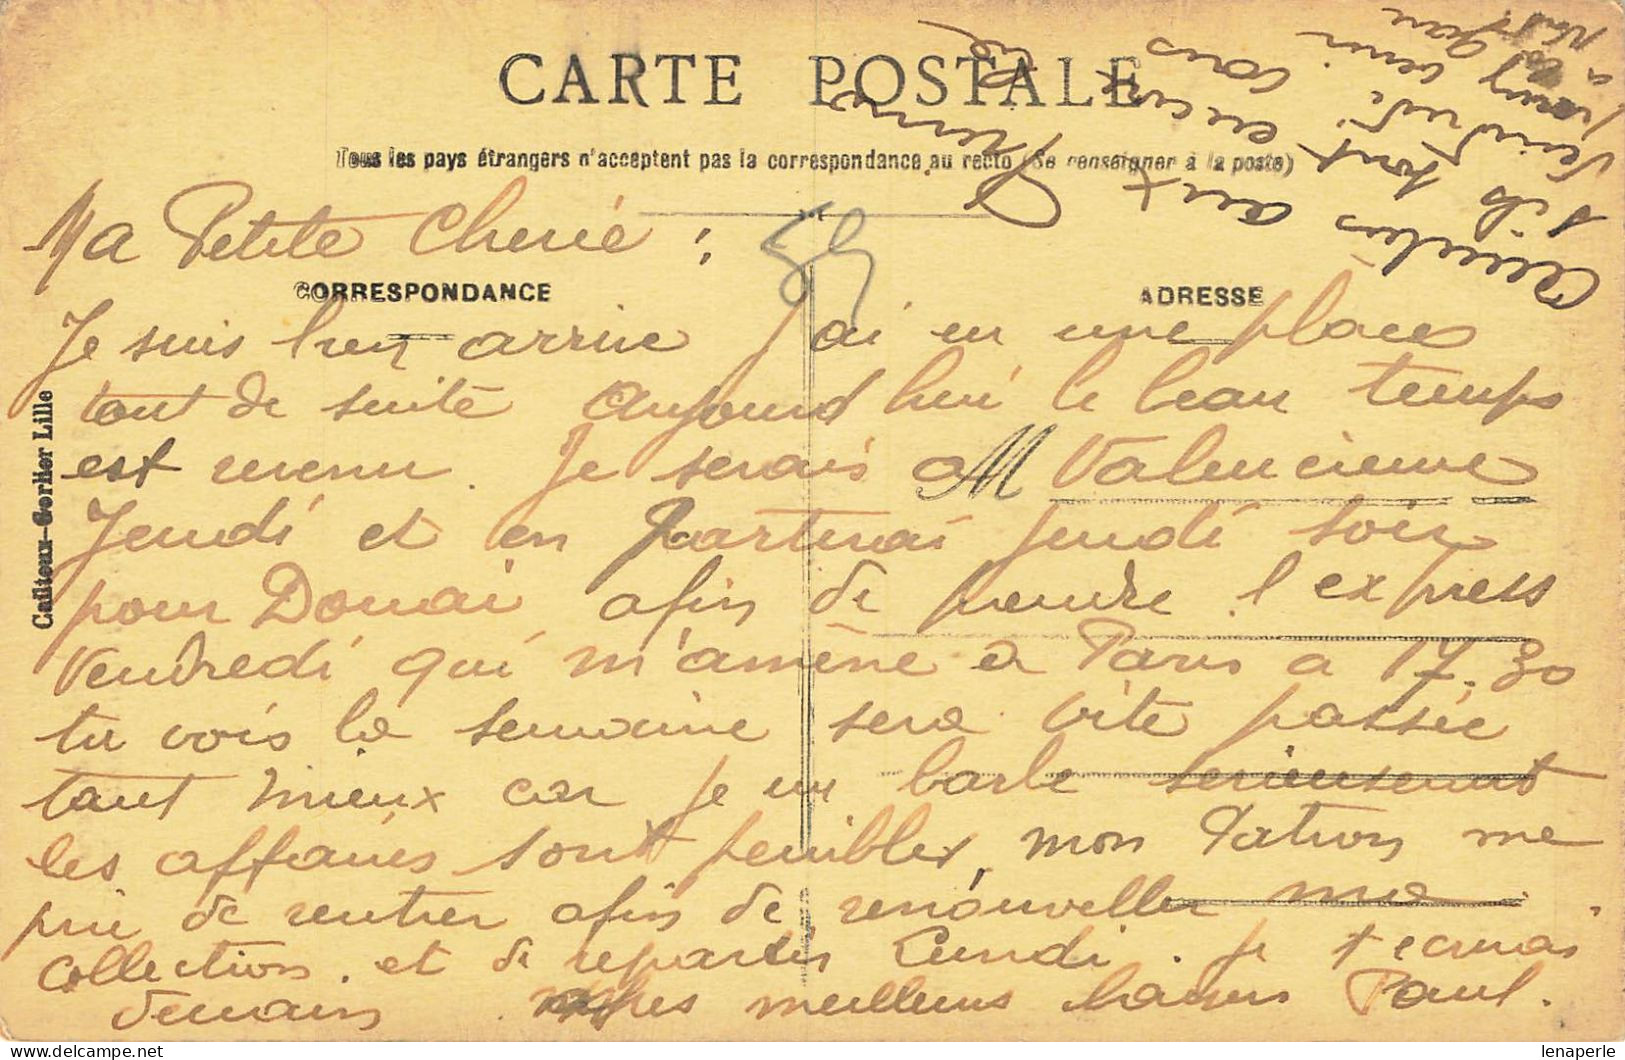 CARTE POSTALE
Tous les pays étrangers n'acceptent pas la correspondance au recto (Se renseigner à la poste)
Ma Petite Cherie :
59
CORRESPONDANCE
ADRESSE
Je suis bien arrive J'ai eu une place
tout de suite Aujourd hui le beau temps
est revenu. Je serais a Valencienne
Jeudi et en partirai jeudi soir
pour Douai, afin de prendre l'express
Vendredi qui m'amène a Paris a 17.30
tu vois la semaine sera vite passée
tant mieux car je me
les affaires sont penibles, mon Patron me
prie de rentrer afin de renouveller ma
collection. et de repartir Lundi. je t ecrirai
demain mes meilleurs baisers Paul.
Amities aux
s'ils sont encore
Vendredi
Cailteux-Gorlier Lille
lenaperle